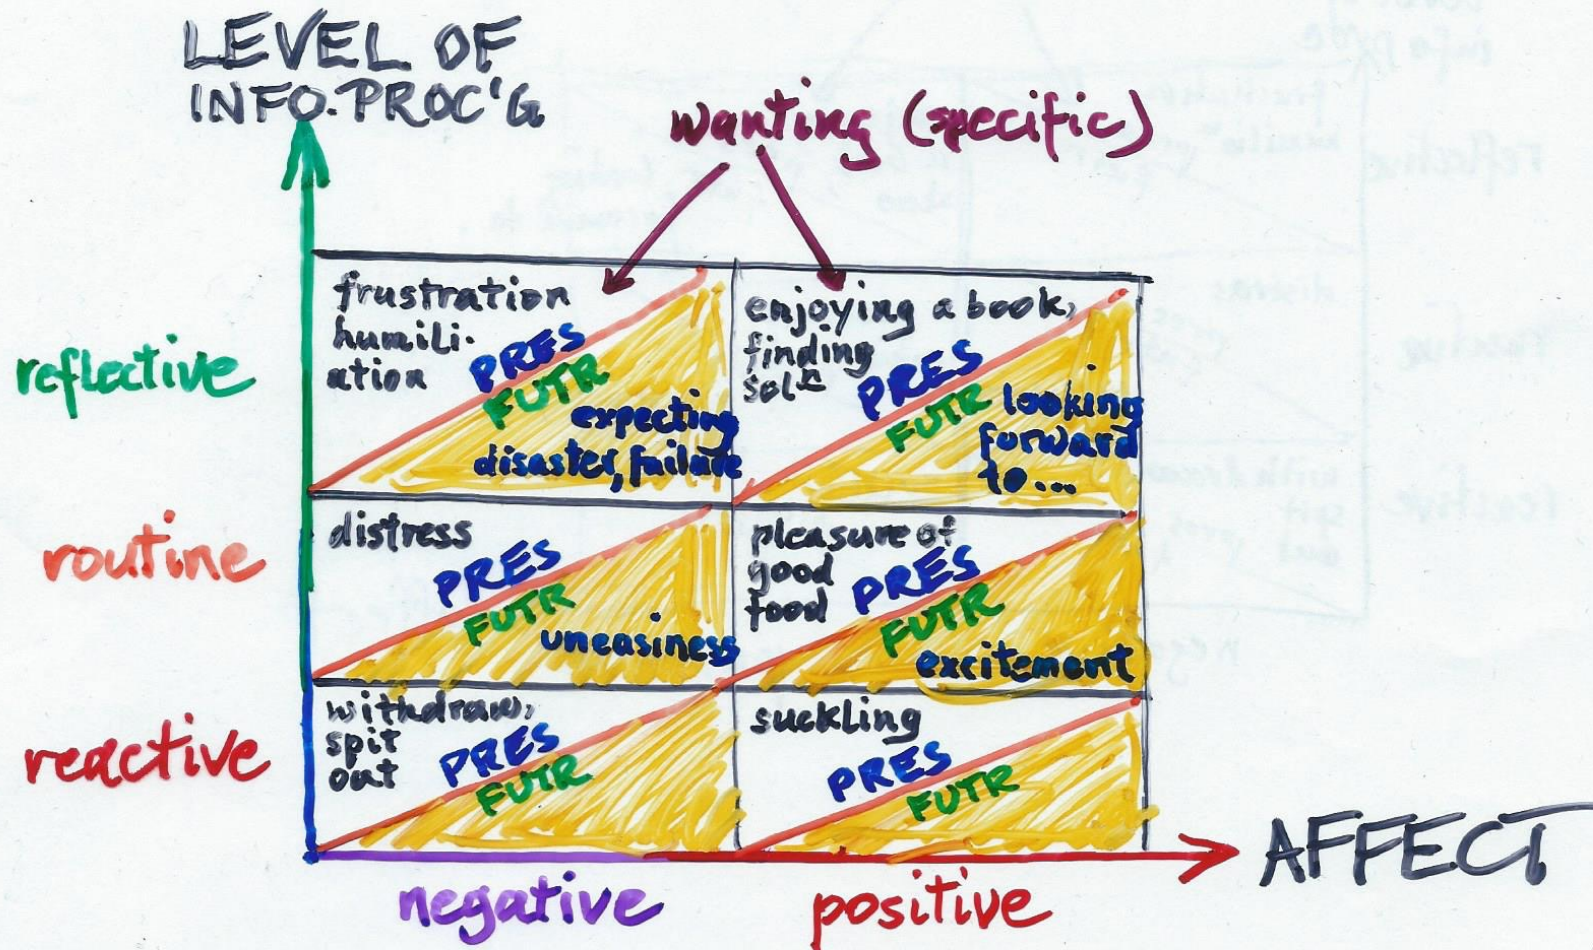 LEVEL OF
INFO. PROC'G
wanting (specific)
reflective
frustration
humili-
ation
PRES
FUTR
expecting
disaster, failure
enjoying a book,
finding
solⁿ
PRES
FUTR
looking
forward
to...
routine
distress
PRES
FUTR
uneasiness
pleasure of
good
food
PRES
FUTR
excitement
reactive
withdraw,
spit
out
PRES
FUTR
suckling
PRES
FUTR
AFFECT
negative
positive